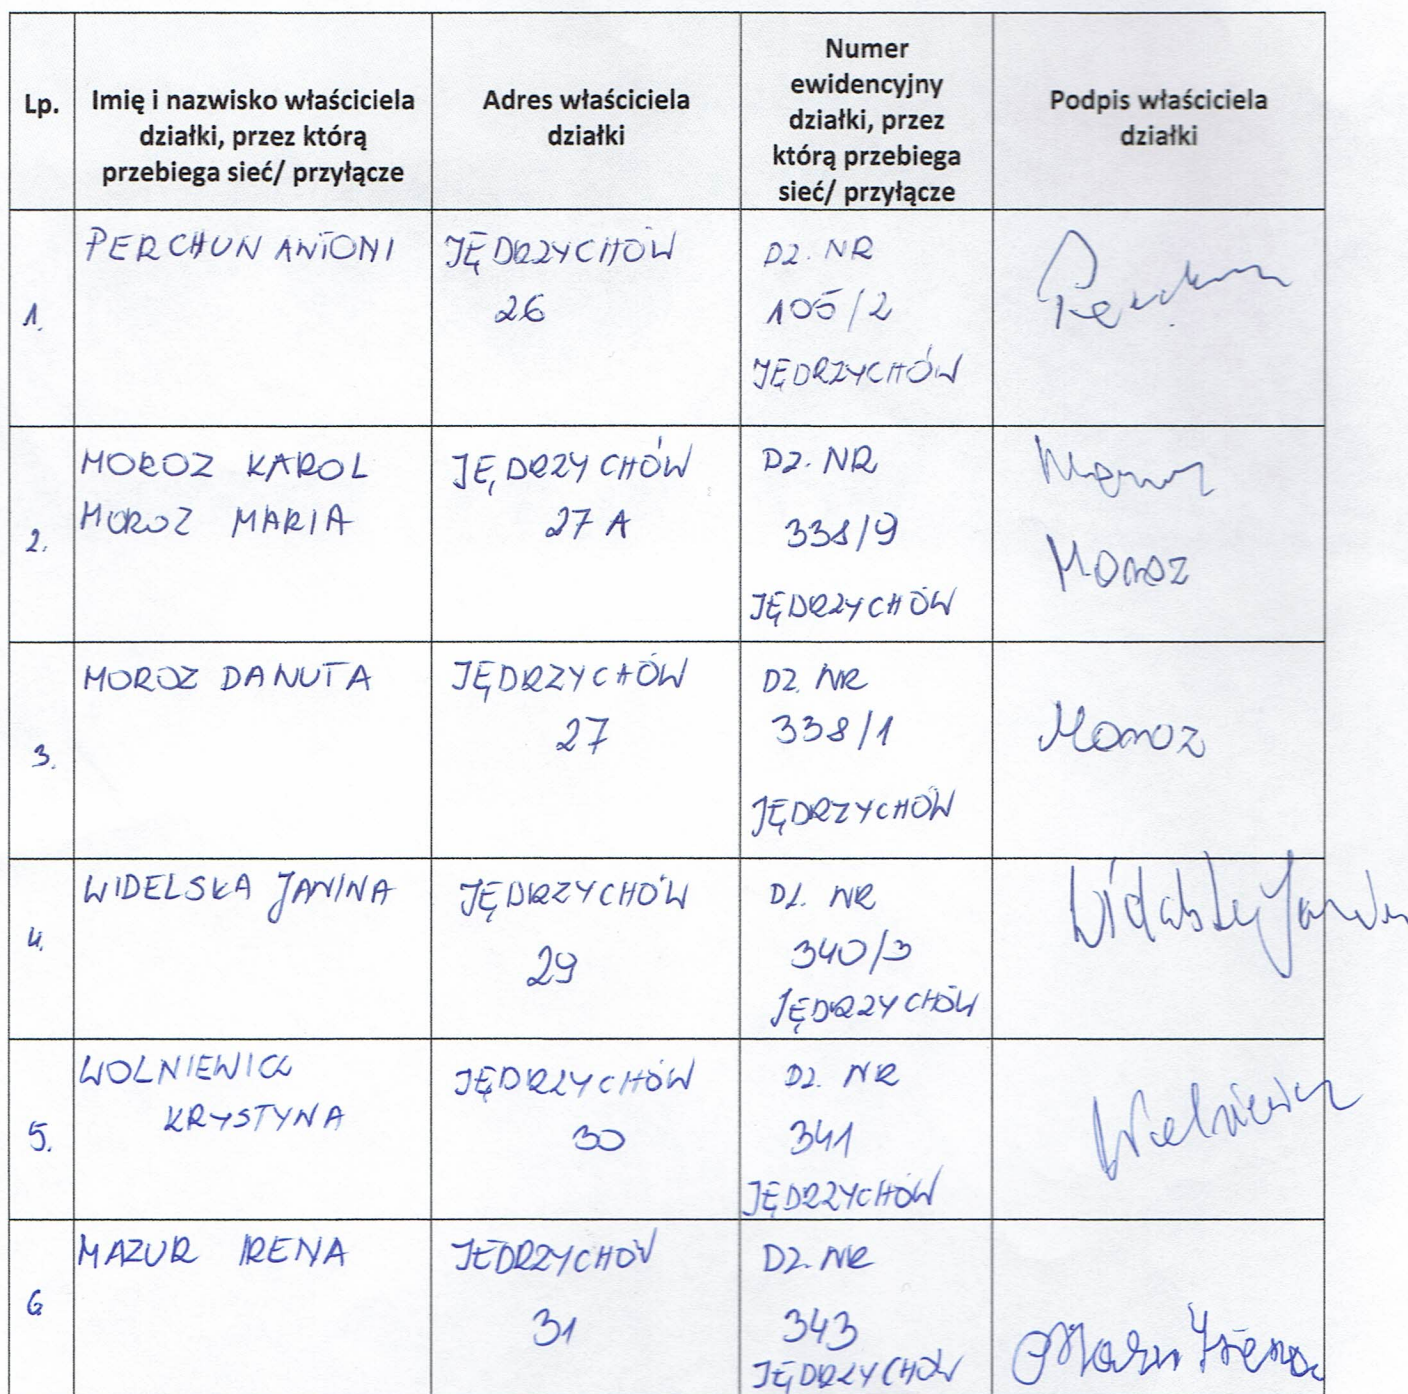 Lp.
Imię i nazwisko właściciela
działki, przez którą
przebiega sieć/ przyłącze
Adres właściciela
działki
Numer
ewidencyjny
działki, przez
którą przebiega
sieć/ przyłącze
Podpis właściciela
działki
1.
PERCHUN ANTONI
JĘDRZYCHÓW
26
DZ. NR
105/2
JĘDRZYCHÓW
2.
MOROZ KAROL
MOROZ MARIA
JĘDRZYCHÓW
27 A
DZ. NR
338/9
JĘDRZYCHÓW
Moroz
Moroz
3.
MOROZ DANUTA
JĘDRZYCHÓW
27
DZ. NR
338/1
JĘDRZYCHÓW
Moroz
4.
WIDELSKA JANINA
JĘDRZYCHÓW
29
DZ. NR
340/3
JĘDRZYCHÓW
5.
WOLNIEWICZ
KRYSTYNA
JĘDRZYCHÓW
30
DZ. NR
341
JĘDRZYCHÓW
Wolniewicz
6
MAZUR IRENA
JEDRZYCHÓW
31
DZ. NR
343
JĘDRZYCHÓW
Mazur Irena